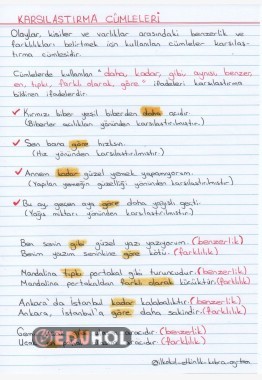 KARŞILAŞTIRMA CÜMLELERİ
Olaylar, kişiler ve varlıklar arasındaki benzerlik ve
farklılıkları belirtmek için kullanılan cümleler karşılaş-
tırma cümlesidir.
Cümlelerde kullanılan "daha, kadar, gibi, aynısı, benzer,
en, tıpkı, farklı olarak, göre" ifadeleri karşılaştırma
bildiren ifadelerdir.
✓ Kırmızı biber yeşil biberden daha acıdır.
(Biberler acılıkları yönünden karşılaştırılmıştır.)
✓ Sen bana göre hızlısın.
(Hız yönünden karşılaştırılmıştır.)
✓ Annem kadar güzel yemek yapamıyorum.
(Yapılan yemeğin güzelliği yönünden karşılaştırılmıştır.)
✓ Bu ay, geçen aya göre daha yağışlı geçti.
(Yağış miktarı yönünden karşılaştırılmıştır.)
Ben senin gibi güzel yazı yazıyorum. (benzerlik)
Benim yazım seninkine göre kötü. (farklılık)
Mandalina tıpkı portakal gibi turuncudur. (benzerlik)
Mandalina portakaldan farklı olarak küçüktür. (farklılık)
Ankara'da İstanbul kadar kalabalıktır. (benzerlik)
Ankara, İstanbul'a göre daha sakindir. (farklılık)
(benzerlik)
(farklılık)
EDUHOL